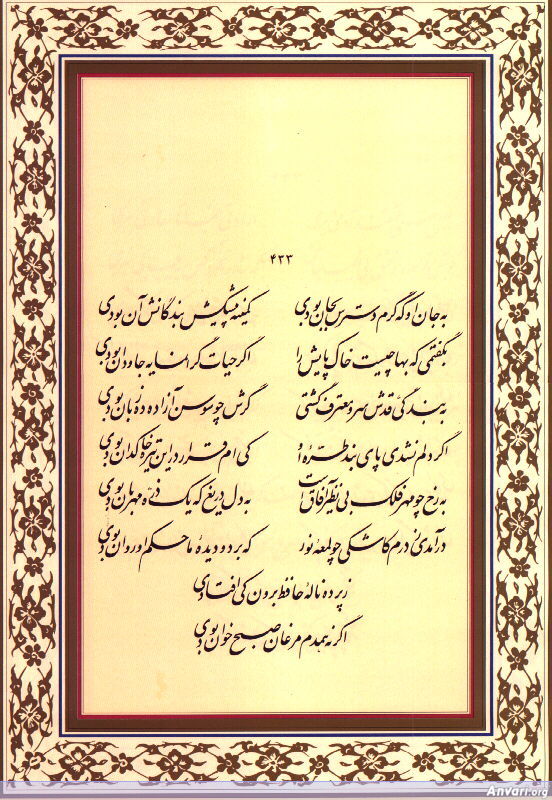 ۴۳۳
به جان او که گرم دسترس بجان بودی کمینه پیشکش بندگانش آن بودی
بگفتمی که بها چیست خاک پایش را اگر حیات گرانمایه جاودان بودی
به بندگی قدش سرو معترف گشتی گرش چو سوسن آزاده ده زبان بودی
اگر دلم نشدی پای بند طره او کی ام قرار در این تیره خاکدان بودی
به رخ چو مهر فلک بی نظیر آفاق است به دل دریغ که یک ذره مهربان بودی
درآمدی ز درم کاشکی چو لمعه نور که بر دو دیده ما حکم او روان بودی
ز پرده ناله حافظ برون کی افتادی
اگر نه همدم مرغان صبح خوان بودی
Anvari.org